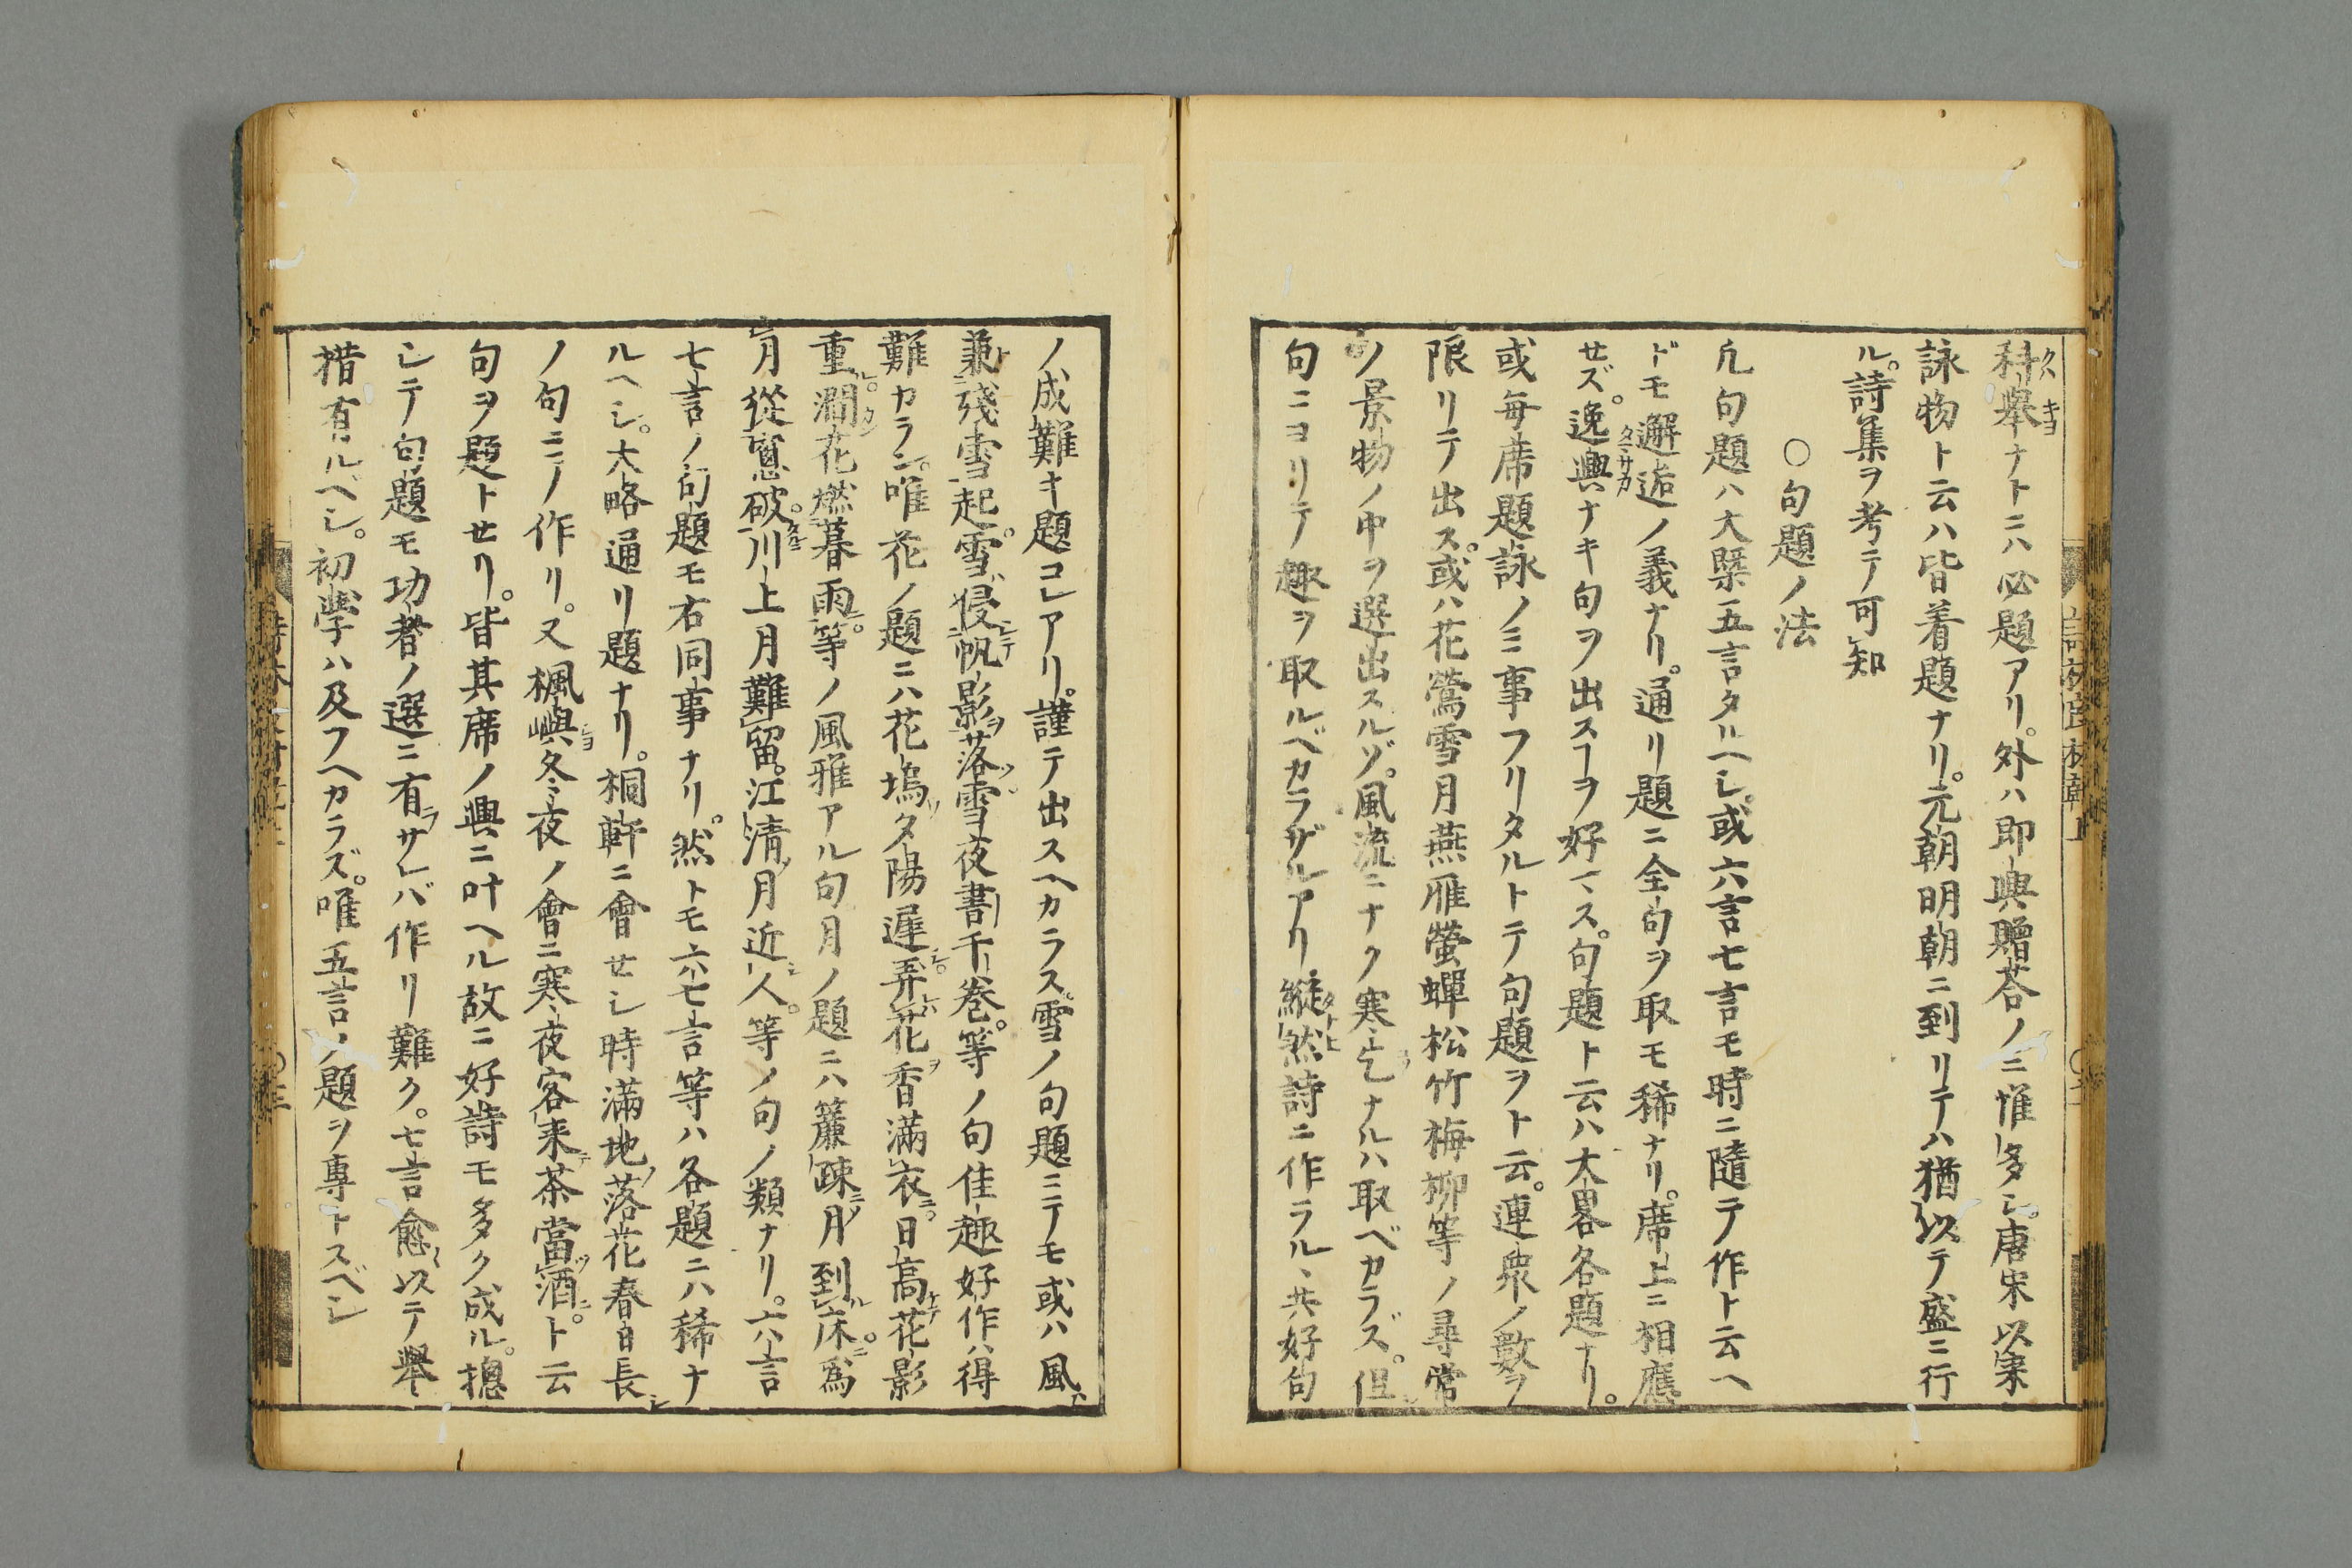 科舉ナトニハ必題アリ。外ハ即興贈荅ノミ惟多シ。唐宋以來
詠物ト云ハ皆着題ナリ。元朝明朝ニ到リテハ猶以テ盛ニ行
ル。詩集ヲ考テ可知
〇句題ノ法
凡句題ハ大槩五言タルヘシ。或六言七言モ時ニ隨テ作ト云ヘ
ドモ邂逅ノ義ナリ。通リ題ニ全句ヲ取モ稀ナリ。席上ニ相應
せズ。逸興ナキ句ヲ出スヿヲ好マス。句題ト云ハ大畧各題ナリ。
或毎席題詠ノミ事フリタルトテ句題ヲト云。連衆ノ數ヲ
限リテ出ス。或ハ花鶯雪月燕雁螢蟬松竹梅柳等ノ尋常
ノ景物ノ中ヲ選出スルゾ。風流ニナク寒乞ナルハ取ベカラズ。但
句ニヨリテ趣ヲ取ルベカラザルアリ縱然詩ニ作ラル丶共好句
ノ成難キ題コレアリ。謹テ出スヘカラス。雪ノ句題ニテモ或ハ風
兼殘雪起。雪侵帆影落。雪夜書千巻。等ノ句佳趣好作ハ得
難カラン。唯花ノ題ニハ花塢夕陽遲。弄花香滿衣。日高花影
重。澗花燃暮雨。等ノ風雅アル句月ノ題ニハ簾疎月到床。爲
月從窻破。川上月難留。江清月近人。等ノ句ノ類ナリ。六言
七言ノ句題モ右同事ナリ。然トモ六七言等ハ各題ニハ稀ナ
ルヘシ。大略通リ題ナリ。桐軒ニ會せシ時滿地落花春日長
ノ句ニテノ作リ。又楓嶼冬夜ノ會ニ寒夜客来茶當酒。ト云
句ヲ題トせリ。皆其席ノ興ニ叶ヘル故ニ好詩モ多ク成ル。揔
シテ句題モ功者ノ選ニ有サレバ作リ難ク。七言愈以テ舉
措有ルベシ。初學ハ及フヘカラズ。唯五言ノ題ヲ專トスベシ